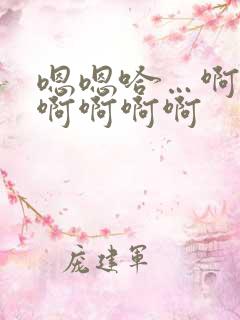 嗯嗯哈…啊
啊啊啊啊
庞建军